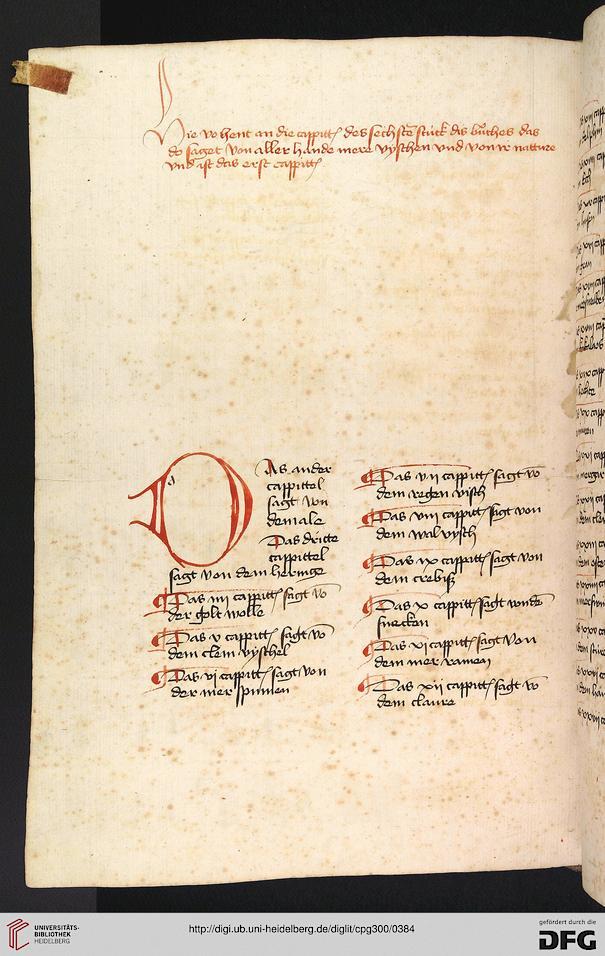 Hie vohent an die cappitt des sechste stück dis buches das
do saget von aller hande mere vyschen vnd von ir natture
vnd ist das erst cappitt
DAs ander
cappittel
sagt von
dem ale
Das dritte
cappittel
sagt von dem heringe
Das iiii cappitt sagt vo
der golt wolle
Das v cappitt sagt vo
dem clem vyschel
Das vi cappitt sagt von
der mer spinnen
Das vii cappitt sagt vo
dem regen visch
Das viii cappitt sagt von
dem wal vysch
Das ix cappitt sagt von
dem crebisz
Das x cappitt sagt von de
snecken
Das xi cappitt sagt von
dem mer
Das xii cappitt sagt vo
dem claure
UNIVERSITÄTS-
BIBLIOTHEK
HEIDELBERG
http://digi.ub.uni-heidelberg.de/diglit/cpg300/0384
gefördert durch die
DFG